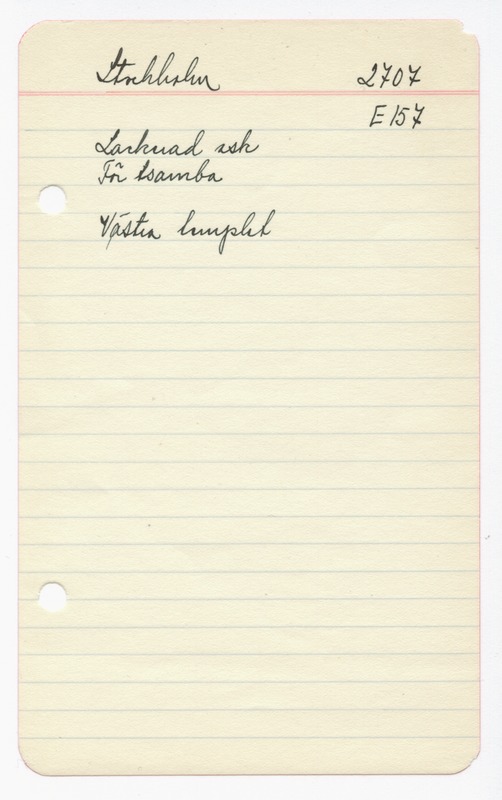 Stockholm 2707
E 157
Lackerad ask
För tsamba
Västra templet